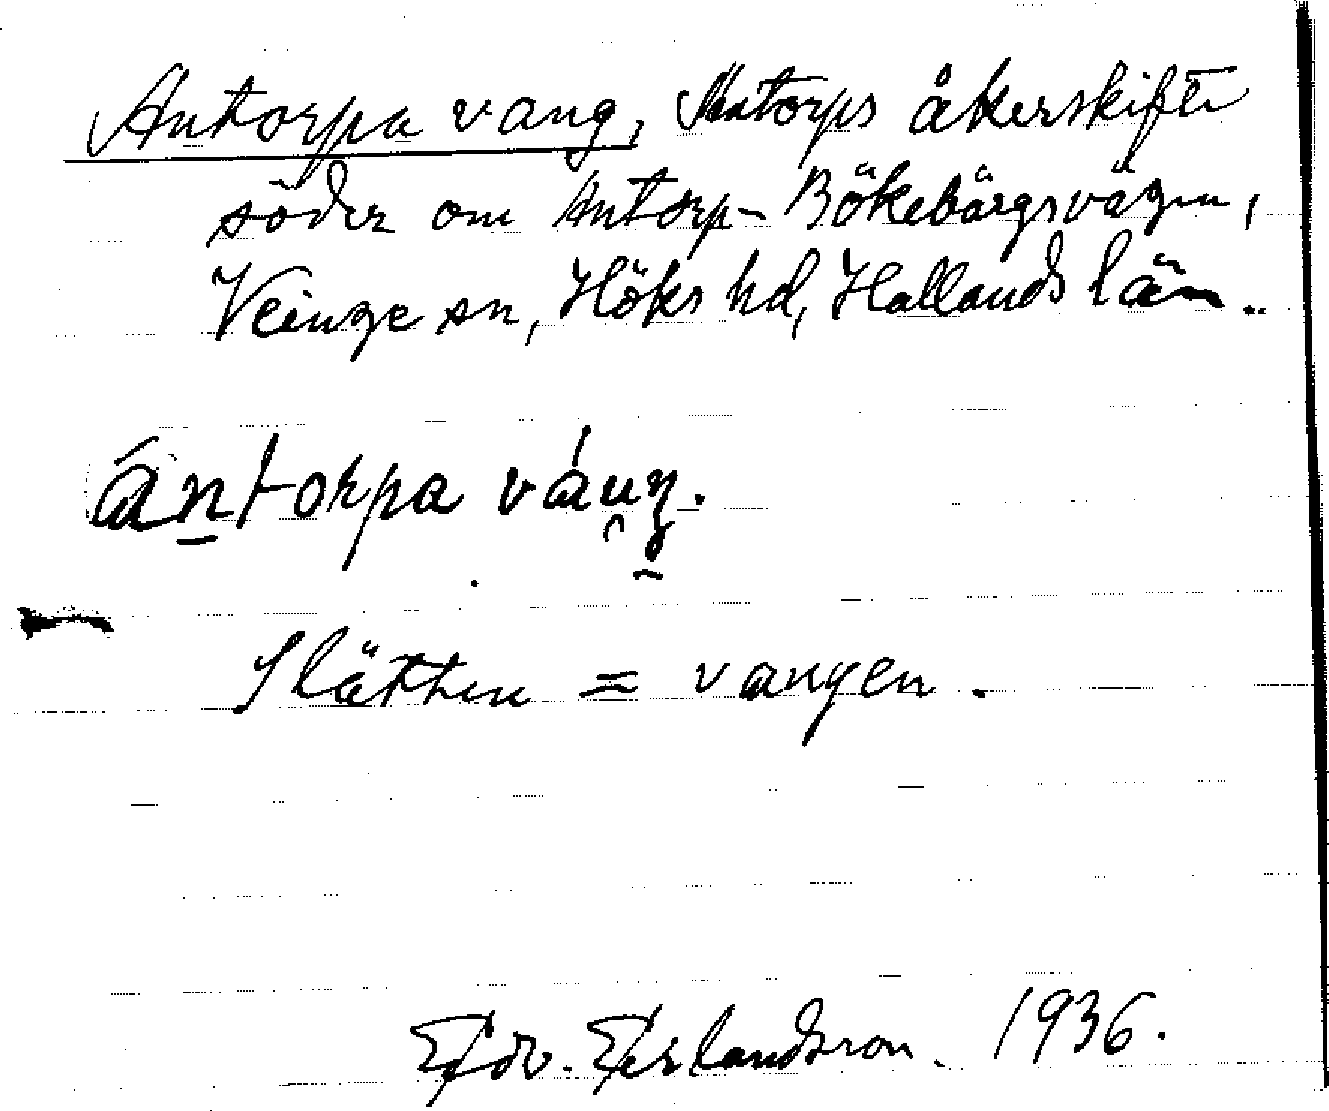 Antorpa vang, Antorps åkerskifte
söder om Antorp-Bökebärgsvägen,
Veinge sn, Höks hd, Hallands län.
ántorpa váuŋ.
Slätten = vangen.
Edv. Erlandsson. 1936.